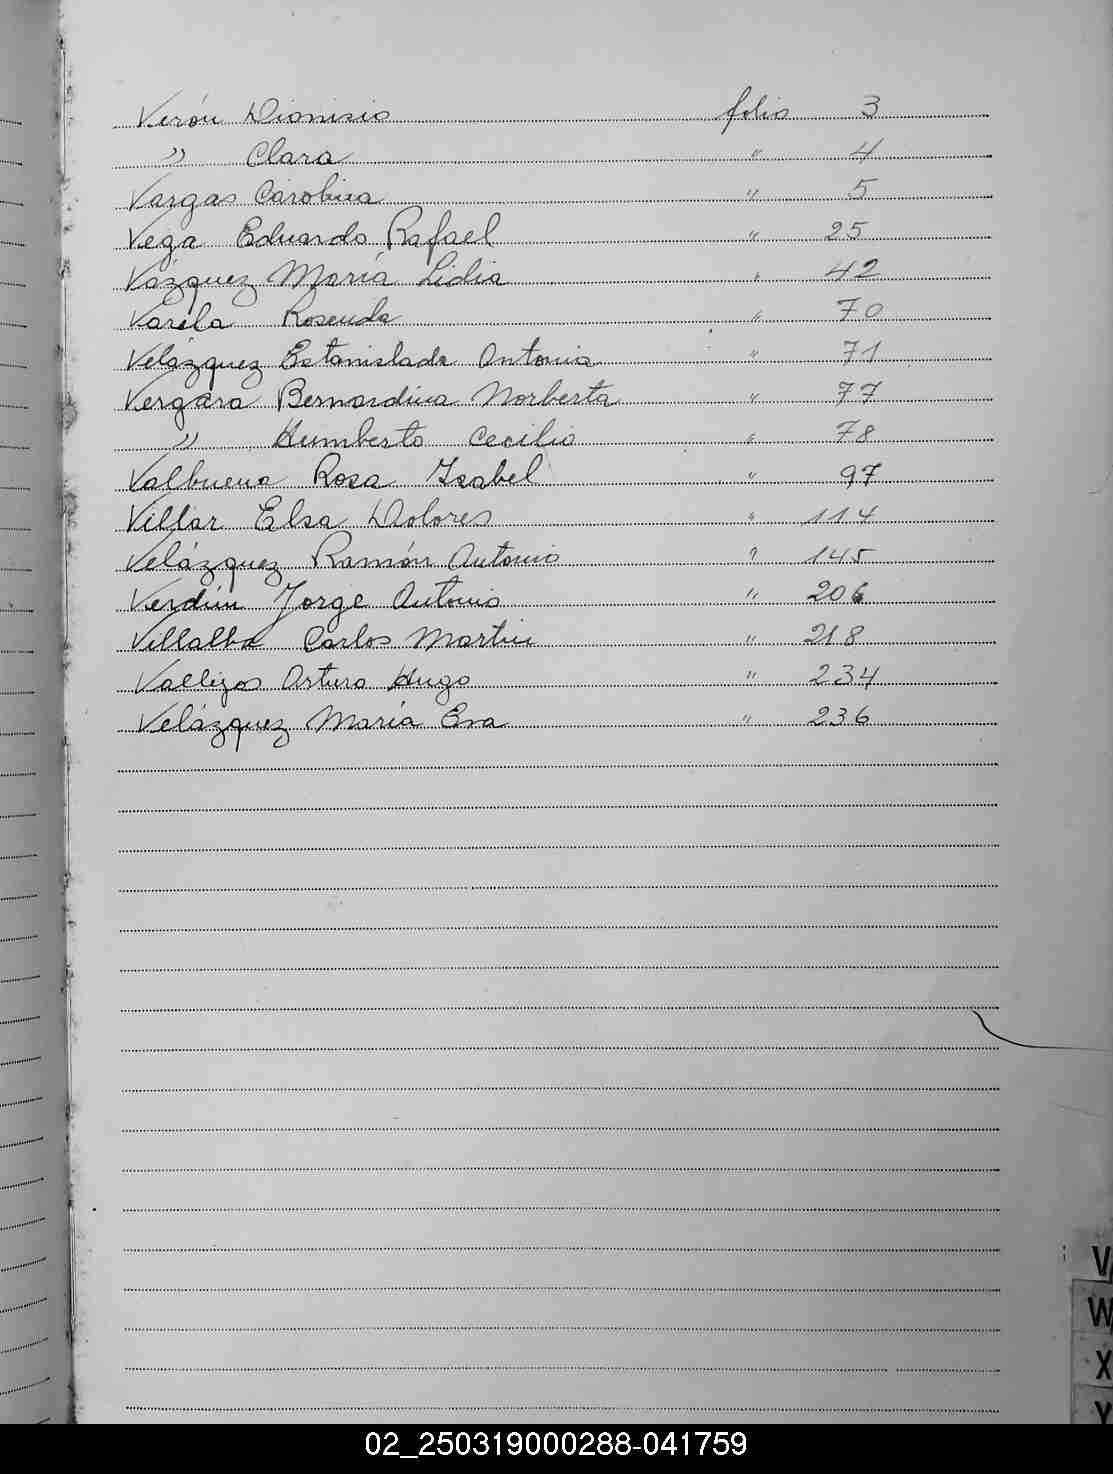 Verón Dionisio folio 3
" Clara " 4
Vargas Carolina " 5
Vega Eduardo Rafael " 25
Vázquez María Lidia " 42
Varela Rosenda " 70
Velázquez Estanislada Antonia " 71
Vergara Bernardina Norberta " 77
" Humberto Cecilio " 78
Valbuena Rosa Isabel " 97
Villar Elsa Dolores " 114
Velázquez Ramón Antonio " 145
Verdún Jorge Antonio " 206
Villalba Carlos Martin " 218
Vallejos Arturo Hugo " 234
Velázquez María Eva " 236
V
W
X
Y
02_250319000288-041759